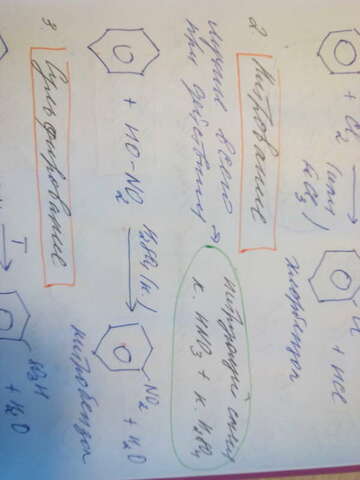 + Cl2 (или FeCl3) → Cl + HCl
хлорбензол
2 Нитрование
Лучше всего →
при действии
нитрующую смесь
к. HNO3 + к. H2SO4
+ HO-NO2 H2SO4 (к.) → NO2 + H2O
нитробензол
3. Сульфирование
T → SO3H + H2O